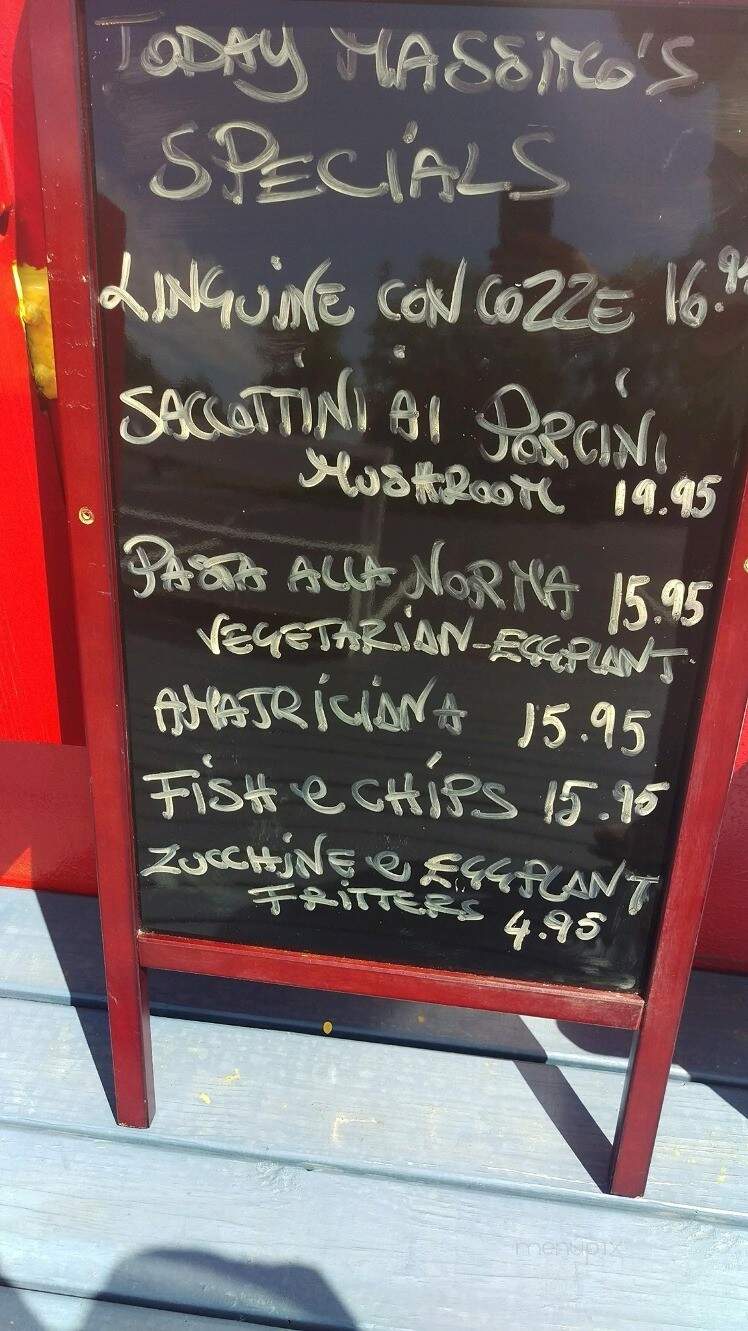 TODAY MASSIMO'S
SPECIALS
LINGUINE CON COZZE 16.95
SACCOTTINI AI PORCINI
MUSHROOM 19.95
PASTA ALLA NORMA 15.95
VEGETARIAN-EGGPLANT.
AMATRICIANA 15.95
FISH e CHIPS 15.95
ZUCCHINE e EGGPLANT
FRITTERS 4.95
menupix